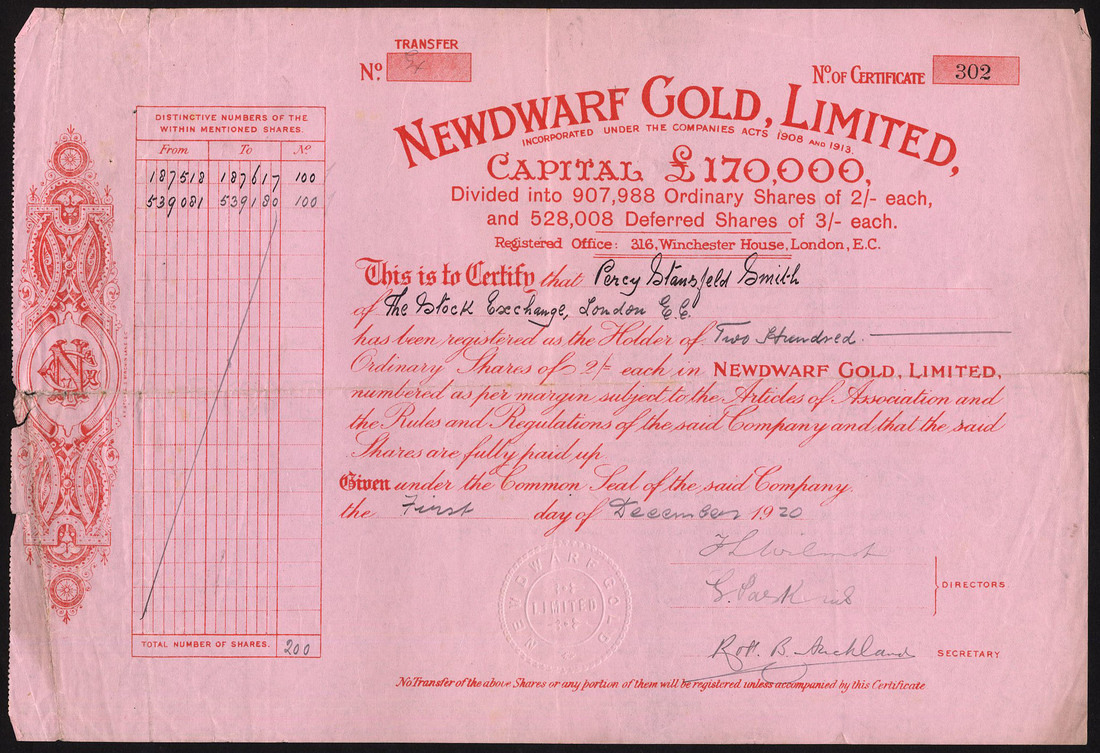 TRANSFER
Nº.
Nº. OF CERTIFICATE 302
NEWDWARF GOLD, LIMITED,
INCORPORATED UNDER THE COMPANIES ACTS 1908 AND 1913.
CAPITAL £170,000,
Divided into 907,988 Ordinary Shares of 2/- each,
and 528,008 Deferred Shares of 3/- each.
Registered Office: 316, Winchester House, London, E.C.
DISTINCTIVE NUMBERS OF THE
WITHIN MENTIONED SHARES.
From To Nº
187518 187617 100
539081 539180 100
TOTAL NUMBER OF SHARES. 200
This is to Certify that Percy Stansfeld Smith
of The Stock Exchange, London E.C.
has been registered as the Holder of Two Hundred
Ordinary Shares of 2/- each in NEWDWARF GOLD, LIMITED,
numbered as per margin subject to the Articles of Association and
the Rules and Regulations of the said Company and that the said
Shares are fully paid up.
Given under the Common Seal of the said Company.
the First day of December 1920
F L Wilmot
DIRECTORS
Robt. B. Auckland SECRETARY
NEWDWARF GOLD
LIMITED
No Transfer of the above Shares or any portion of them will be registered unless accompanied by this Certificate